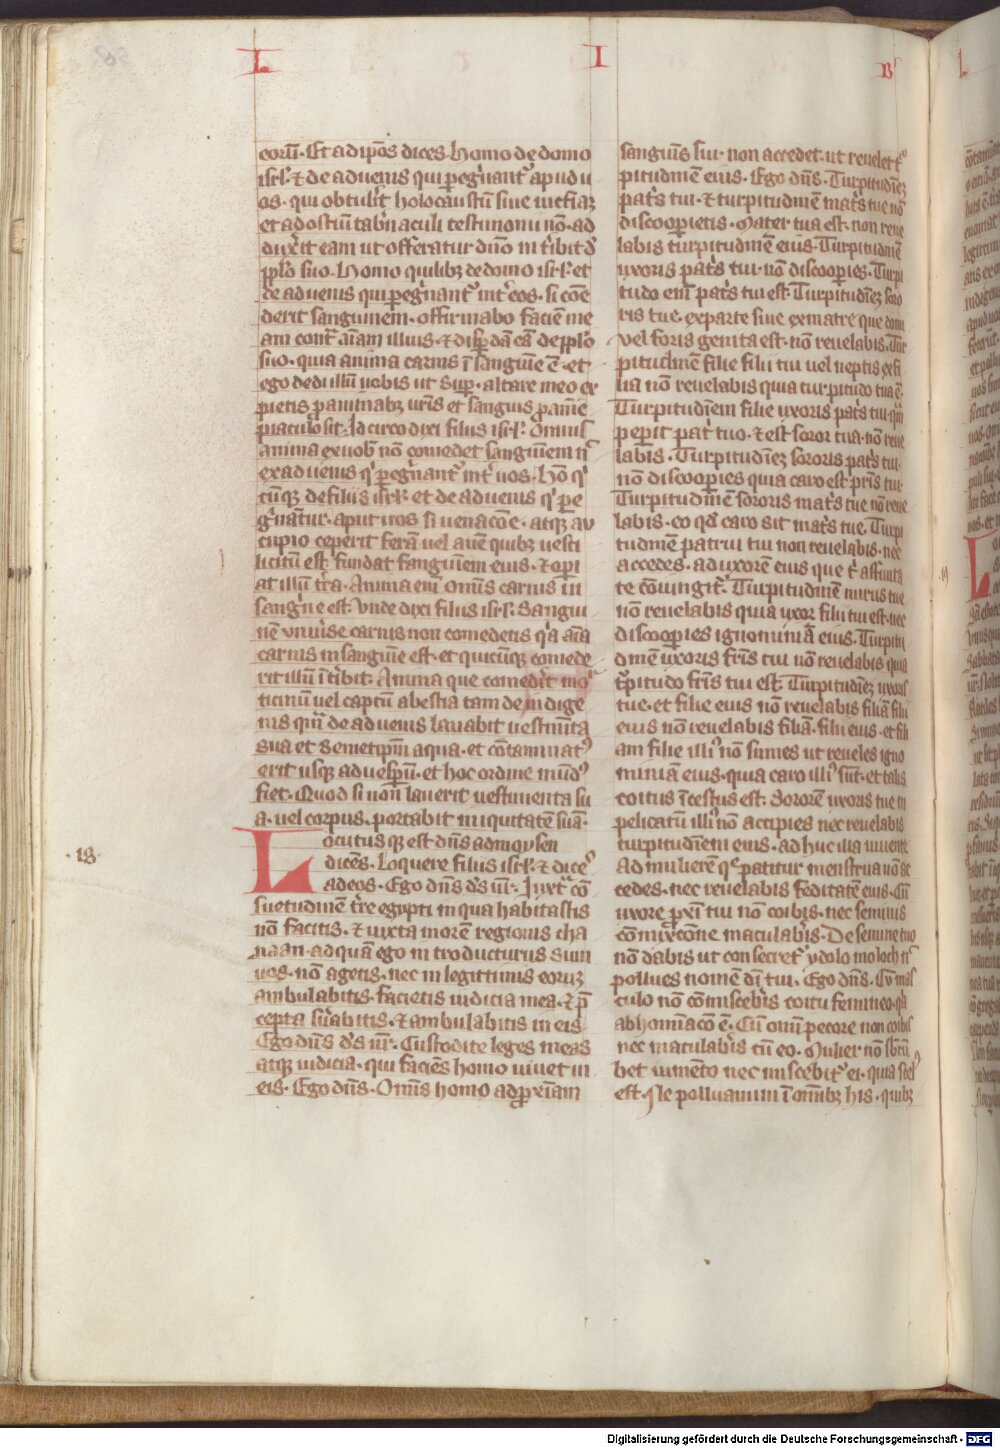 L I B
eorū. Et ad ipōs dices. Homo de domo
isrl'. & de aduenis qui peg̃nant' apud u
os. qui obtulit holocaustū siue uictiāꝫ
et ad ostiū tab̾naculi testimonii nō. ad
dux̾it eam ut offeratur dn̄o int̾ibit d̾
pplo suo. Homo quilibꝫ de domo isrl'. et
de aduenis qui peg̃nant' int̾ eos. si cōe
derit sanguinem. offirmabo faciē me
am cont̾ aīam illius. & disp̱dā eā de pplo
suo. quia anima carnis ī sanguīe ē. et
ego dedi illū uobis ut sup̱. altare meo ex
pietis p̱ animabꝫ ur̄is et sanguis p̱ aīme
piaculo sit. Id circo dixi filiis isrl'. Omnis
anima ex uob̾ nō comedet sanguinem n̾
ex aduenis q̾ p̱eg̃nant' int̾ uos. Hō q̾
cūqꝫ de filiis isrl'. et de aduenis q̾ p̱e
g̾nātur. aput uos si uenacōe. atqꝫ au
cupio ceperit ferā uel auē quibꝫ uesci
licitū est fundat sanguinem eius. & op̱i
at illū t̾ra. Anima eni̅ om̄is carnis in
sang̾ne est. Vnde dixi filiis isrl'. Sangui
nē vniu̾se carnis non comedetis q̾a aīa
carnis in sanguīe est. et quicūqꝫ comede
rit illū īt̾ibit. Anima que comed̾it mo̾
ticinū uel captū a bestia tam de indige
nis qm̄ de aduenis lauabit uestimēta
sua et semetip̄m aqua. et cōtaminat̾
erit usqꝫ ad uesp̱um. et hoc ordine mūd̾
fiet. Quod si non̄ lauerit uestimenta su
a. uel corpus. portabit iniquitatē suā.
·18·
Locutusqꝫ est dn̄s ad moysen
dicēs. Loquere filiis isrl'. & dice̾
ad eos. Ego dn̄s d̄s ur̄. Iuxt̾ cō
suetudinē t̾re egypti in qua habitastis
nō facitis. & iuxta morē regionis cha
naan. ad quā ego introducturus sum
uos. nō agetis. nec in legittimis eorꝫ
ambulabitis. facietis iudicia mea. & p̄
cepta s̾uabitis. & ambulabitis in eis
Ego dn̄s d̄s ur̄. Custodite leges meas
atqꝫ iudicia. qui faciēs homo uiuet in
eis. Ego dn̄s. Omīs homo ad p̱xīam
sanguīs sui. non accedet. ut reuelet t̾
pitudinē eius. Ego dn̄s. Turpitudīeꝫ
pat̾s tui. & turpitudinē mat̾s tue nō
discoop̱ietis. Mater tua est. non reue
labis turpitudinē eius. Turpitudinē
uxoris pat̾s tui. nō discoop̱ies. Turpi
tudo eni̅ pat̾s tui est. Turpitudīeꝫ soro
ris tue. ex parte siue ex matre que domi
vel foris genita est. nō reuelabis. Tur
pitudinem filie filii tui uel neptis ex fi
lia nō reuelabis quia turpitudo tua ē.
Turpitudīem filie uxoris pat̾s tui. qm̄
pep̱it pat̾ tuo. & est soror tua. nō reue
labis. Turpitudīeꝫ sororis pat̾s tui.
nō discoop̱ies quia caro est pr̄is tui.
Turpitudinēm sororis mat̾s tue nō reue
labis. eo qd̾ caro sit mat̾s tue. Turpi
tudinē patrui tui non reuelabis. nec
accedes. ad uxorē eius que t̾ affinita
te cōiungit̾. Turpitudinē nurus tue
nō reuelabis quia uxor filii tui est. nec
discoop̱ies ignominiā eius. Turpitu
dinē uxoris fr̄is tui nō reuelabis quia
t̾pitudo fr̄is tui est. Turpitudīeꝫ uxoris
tue. et filie eius nō reuelabis filiā filii
eius nō reuelabis filiā. filii eius. et fili
am filie illi̾ nō sumes ut reueles igno
miniā eius. quia caro illi̾ sūt. et talis
coitus īcestus est. Sororē uxoris tue in
pelicatū illi̾ nō accipies nec reuelabis
turpitudinem eius. adhuc illa uiuente
Ad mulierē q̾ patitur menstrua nō ac
cedes. nec reuelabis feditatē eius. Cū
uxore p̱xi̅ tui nō coibis. nec seminis
cōmixcōne maculab̾is. De semine tuo
nō dabis ut consecret̾ ydolo moloch n̾
pollues nomē di̅ tui. Ego dn̄s. Cū mas
culo nō cōmiscebis coitu femineo. q̾a
abhomīacō ē. Cū omi̅ pecore non coibis
nec maculab̾is cū eo. Mulier nō s̾bcū
bet iumēto nec miscebit̾ ei. quia scel̾
est. Ne polluamini ī om̄ibꝫ his. quibꝫ
Digitalisierung gefördert durch die Deutsche Forschungsgemeinschaft - DFG